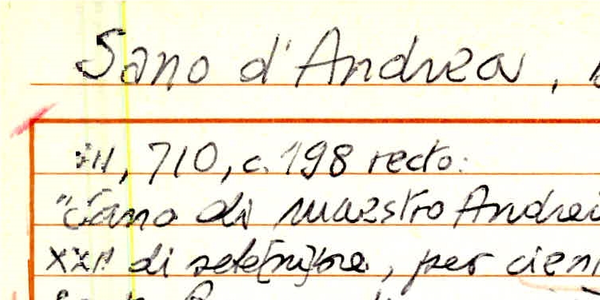 Sano d'Andrea,
III, 710, c. 198 recto:
"Sano di maestro Andrea
XXII di sete[m]bre, per